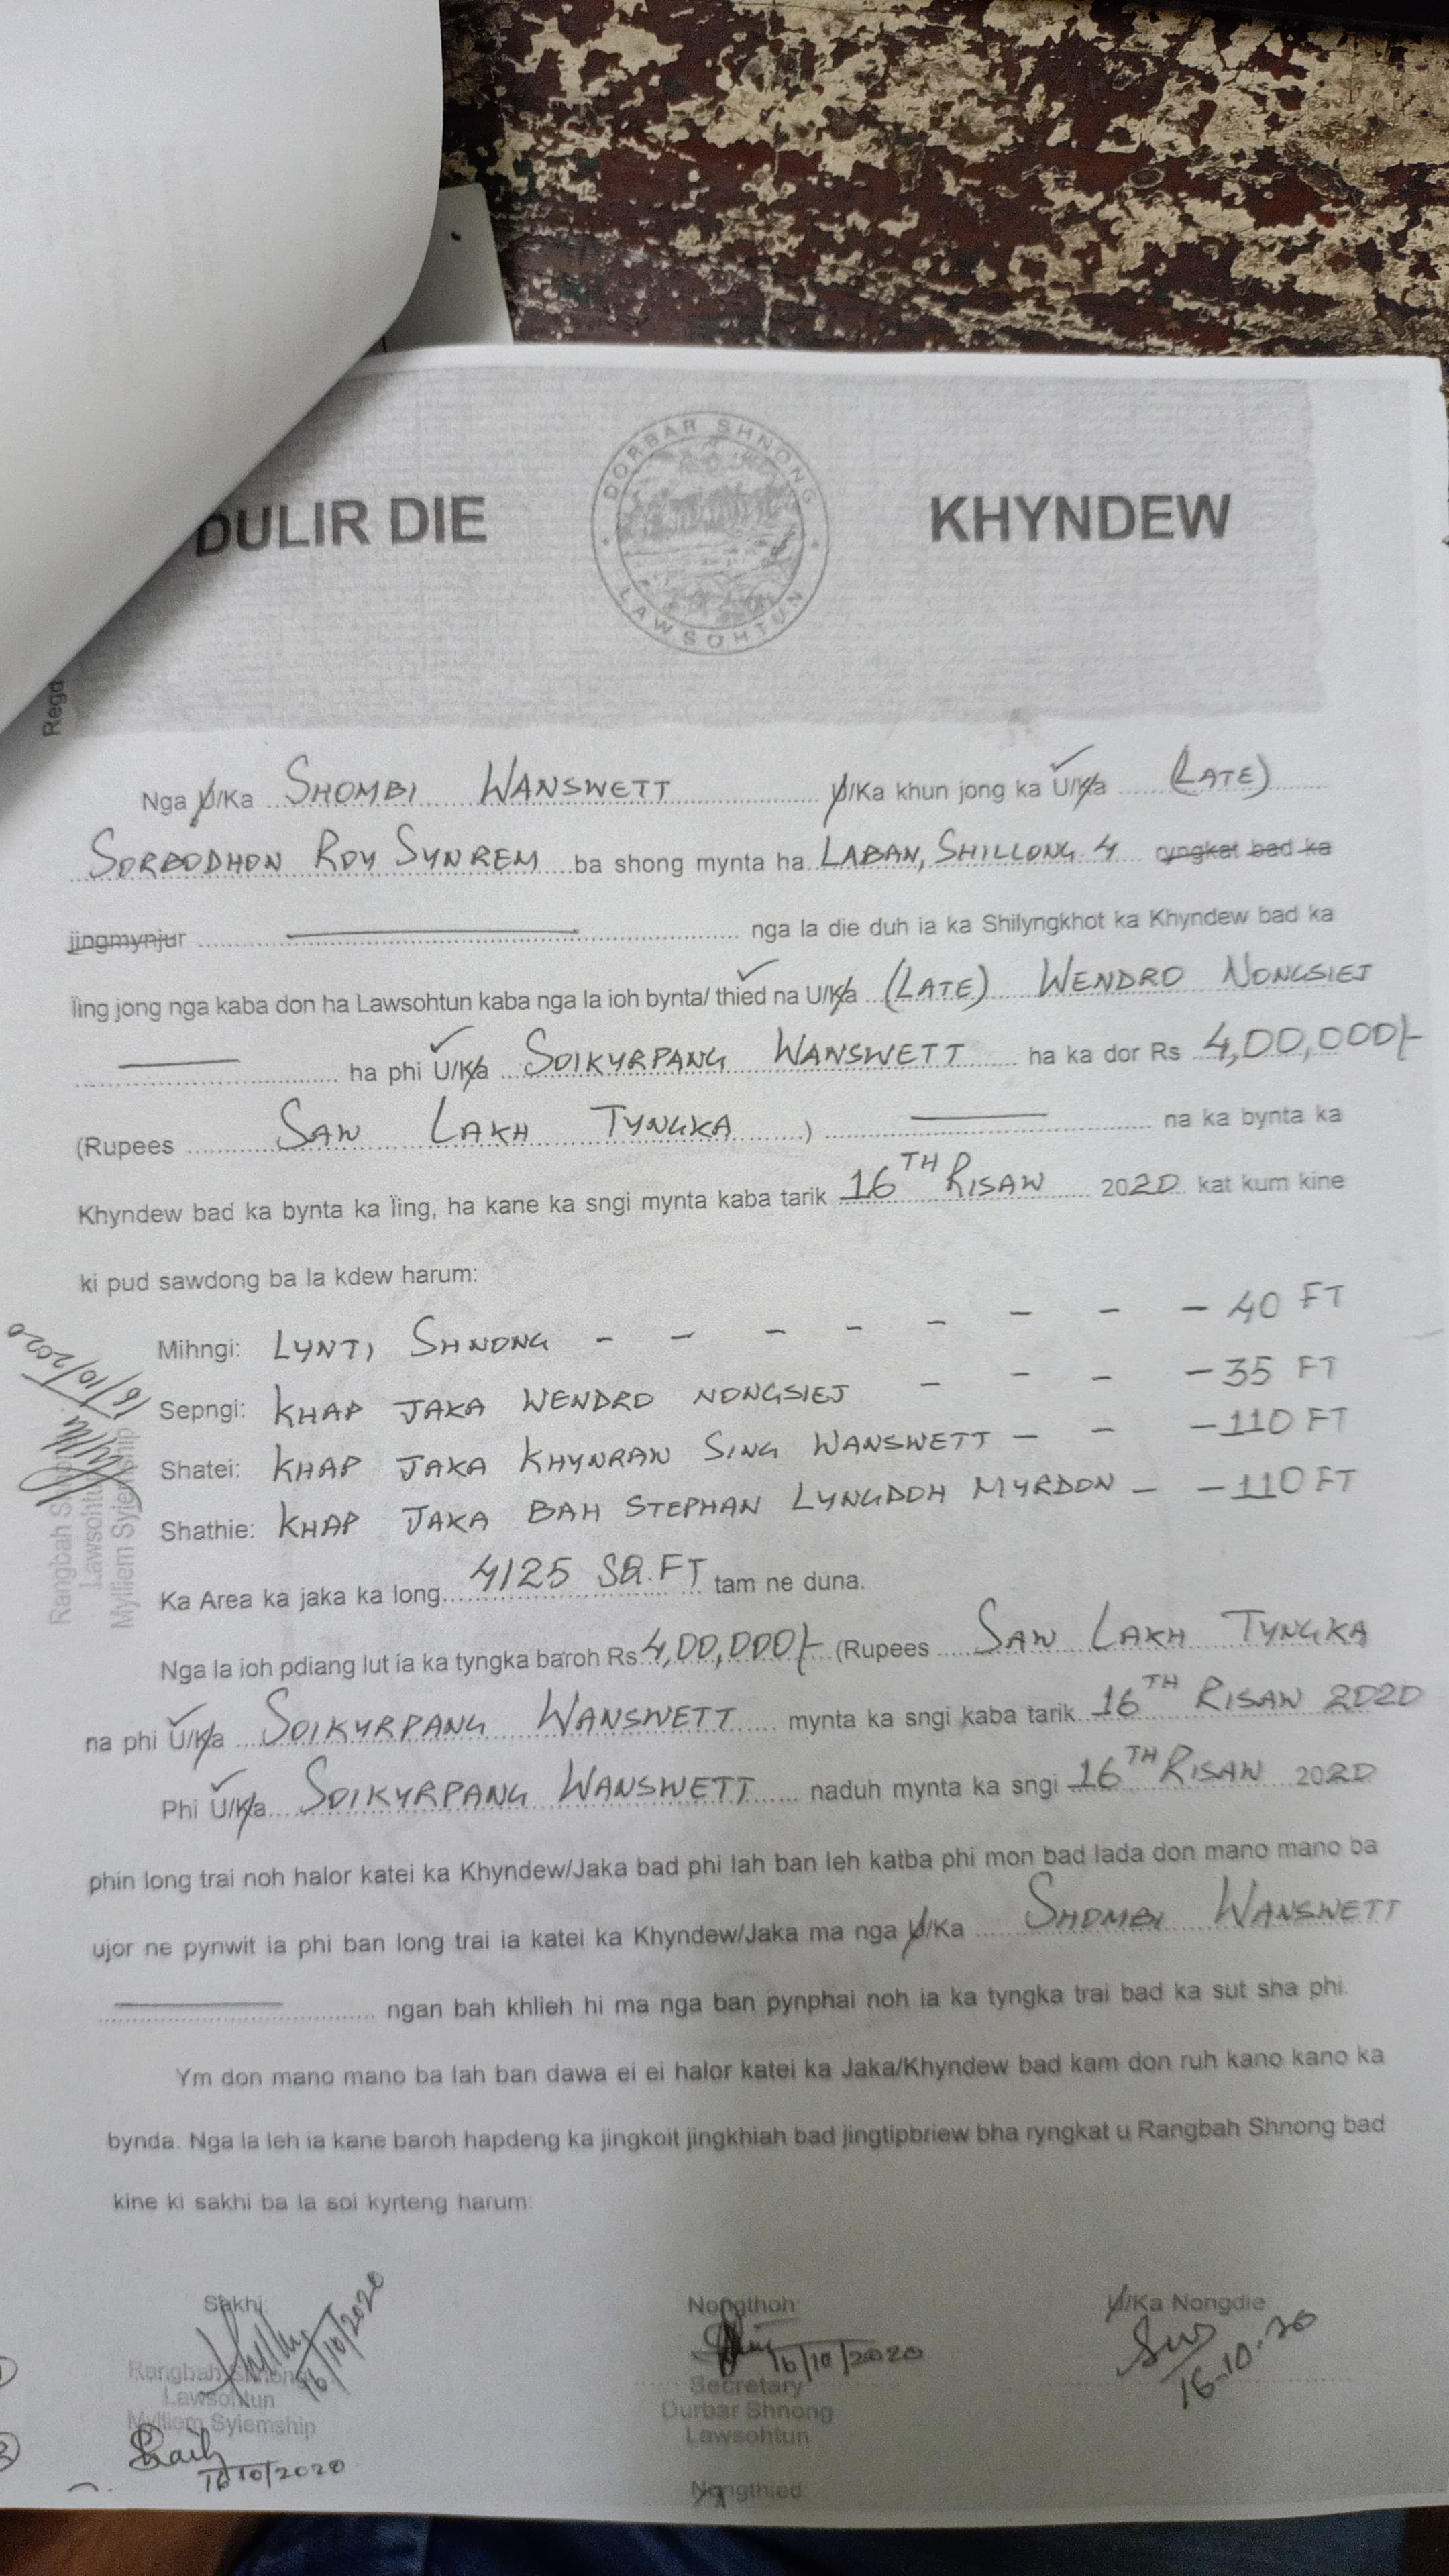 DULIR DIE KHYNDEW
DORBAR SHNONG
LAWSOHTUN
Regd
Nga U/Ka SHOMBI WANSWETT U/Ka khun jong ka U/Ka (LATE)
SORBODHON ROY SYNREM ba shong mynta ha LABAN, SHILLONG 4 ryngkat bad ka
jingmynjur nga la die duh ia ka Shilyngkhot ka Khyndew bad ka
ïing jong nga kaba don ha Lawsohtun kaba nga la ioh bynta/ thied na U/Ka (LATE) WENDRO NONGSIEJ
ha phi U/Ka SOIKYRPANG WANSWETT ha ka dor Rs 4,00,000/-
(Rupees SAW LAKH TYNGKA ) na ka bynta ka
Khyndew bad ka bynta ka ïing, ha kane ka sngi mynta kaba tarik 16TH RISAW 2020 kat kum kine
ki pud sawdong ba la kdew harum:
Mihngi: LYNTI SHNONG - - - - - - - - 40 FT
Sepngi: KHAP JAKA WENDRO NONGSIEJ - - - - 35 FT
Shatei: KHAP JAKA KHYNRAW SING WANSWETT - - - 110 FT
Shathie: KHAP JAKA BAH STEPHAN LYNGDOH MYRDON - - 110 FT
16/10/2020
Rangbah Shnong
Lawsohtun
Mylliem Syiemship
Ka Area ka jaka ka long 4125 SQ.FT tam ne duna.
Nga la ioh pdiang lut ia ka tyngka baroh Rs 4,00,000/- (Rupees SAW LAKH TYNGKA
na phi U/Ka SOIKYRPANG WANSWETT mynta ka sngi kaba tarik 16TH RISAW 2020
Phi U/Ka SOIKYRPANG WANSWETT naduh mynta ka sngi 16TH RISAW 2020
phin long trai noh halor katei ka Khyndew/Jaka bad phi lah ban leh katba phi mon bad lada don mano mano ba
ujor ne pynwit ia phi ban long trai ia katei ka Khyndew/Jaka ma nga U/Ka SHOMBI WANSWETT
ngan bah khlieh hi ma nga ban pynphai noh ia ka tyngka trai bad ka sut sha phi.
Ym don mano mano ba lah ban dawa ei ei halor katei ka Jaka/Khyndew bad kam don ruh kano kano ka
bynda. Nga la leh ia kane baroh hapdeng ka jingkoit jingkhiah bad jingtipbriew bha ryngkat u Rangbah Shnong bad
kine ki sakhi ba la soi kyrteng harum:
Sakhi Nongthoh U/Ka Nongdie
16/10/2020 16/10/2020 16-10-20
Rangbah Shnong
Lawsohtun
Mylliem Syiemship
Secretary
Durbar Shnong
Lawsohtun
16/10/2020
Nongthied